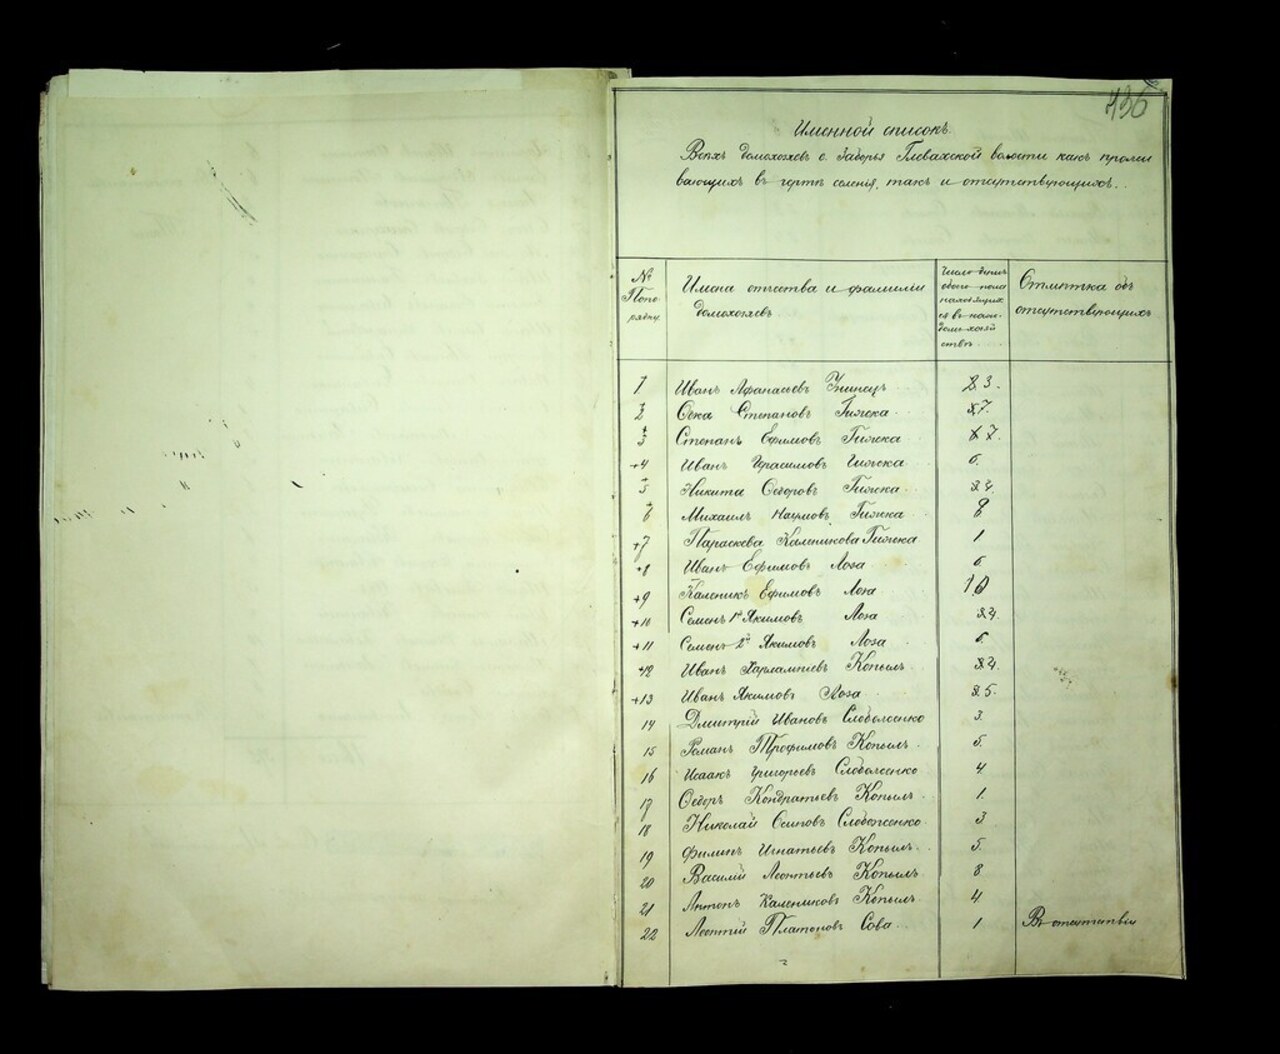 436
Именной списокъ.
Всѣхъ домохозяевъ с. Заборья Глевахской волости какъ прожи
вающихъ въ чертѣ селенія, такъ и отсутствующихъ.
№
По по
рядку
Имена отчества и фамиліи
домохозяевъ
Число душъ
обоего пола
находящих
ся въ каж.
домохозяй
ствѣ
Отмѣтка объ
отсутствующихъ
1 Иванъ Афанасьевъ 3.
2 Степановъ Гижка 7.
3 Степанъ Ефимовъ Гижка 7.
+4 Иванъ Герасимовъ Гижка 6.
5 Никита Ѳедоровъ Гижка 4.
6 Михаилъ Наумовъ Гижка 8
+7 Параскева Калениκова Гижка 1
+8 Иванъ Ефимовъ Лоза 6
+9 Каленикъ Ефимовъ Лоза 10
+10 Семенъ 1й Якимовъ Лоза 4.
+11 Семенъ 2й Якимовъ Лоза 6.
+12 Иванъ Харлампіевъ Копылъ 4.
+13 Иванъ Якимовъ Лоза 5.
14 Дмитрій Ивановъ Слободженко 3.
15 Романъ Трофимовъ Копылъ 5.
16 Исаакъ Григорьевъ Слободженко 4.
17 Ѳедоръ Кондратьевъ Копылъ 1.
18 Николай Осиповъ Слободженко 3
19 Филипъ Игнатьевъ Копылъ 5.
20 Василій Леонтьевъ Копылъ 8
21 Антонъ Калениковъ Копылъ 4.
22 Леонтій Платоновъ Сова 1 Въ отсутствіи